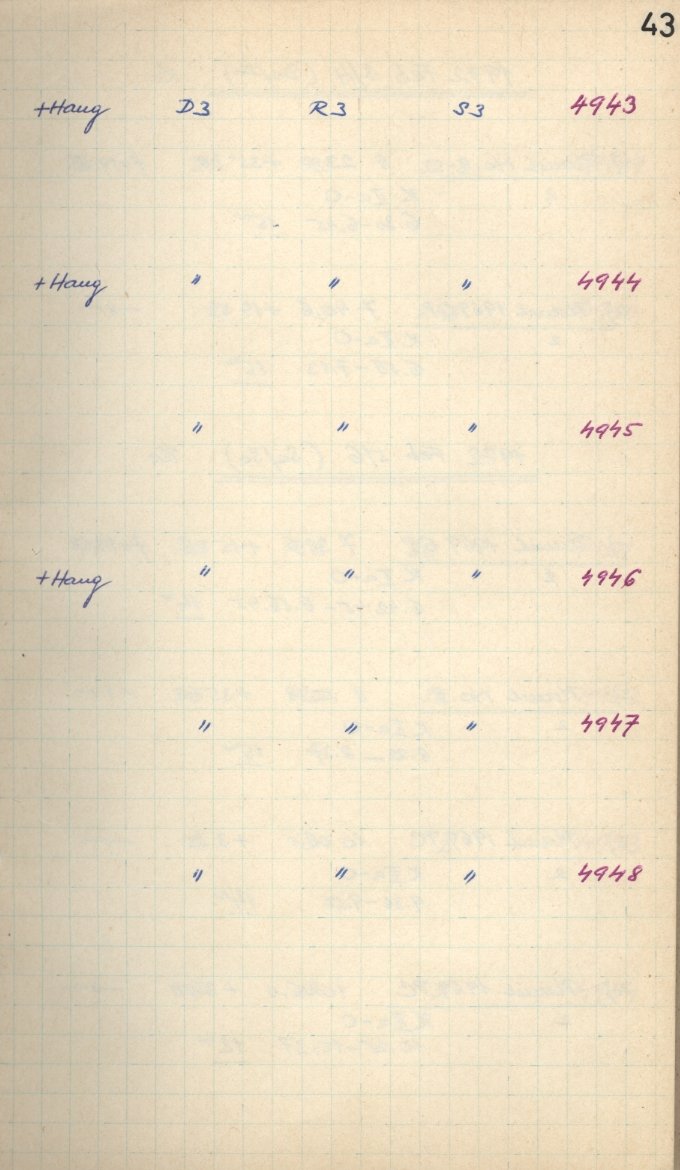 43
+Haug D3 R3 S3 4943
+Haug " " " 4944
" " " 4945
+Haug " " " 4946
" " " 4947
" " " 4948